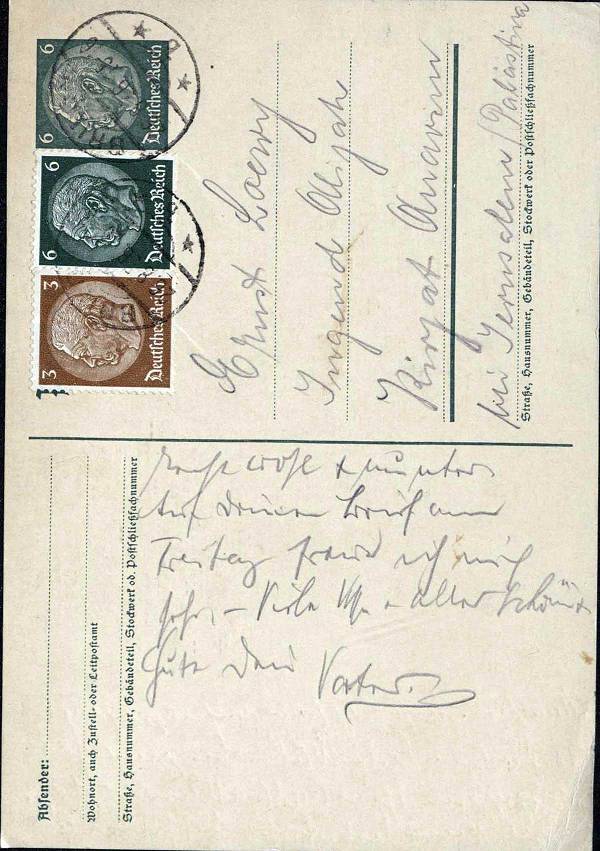 6 6
Deutsches Reich
6 6
Deutsches Reich
3 3
Deutsches Reich
Ernst Loewy
Jugend Alijah
Kirjat Anavim
bei Jerusalem/Palästina
Straße, Hausnummer, Gebäudeteil, Stockwerk oder Postschließfachnummer
Absender:
Wohnort, auch Zustell- oder Leitpostamt
Straße, Hausnummer, Gebäudeteil, Stockwerk od. Postschließfachnummer
recht wohl & munter
Auf deinen Brief am
Freitag freue ich mich
sehr – Viele & alles Schöne
Gute Dein Vater.